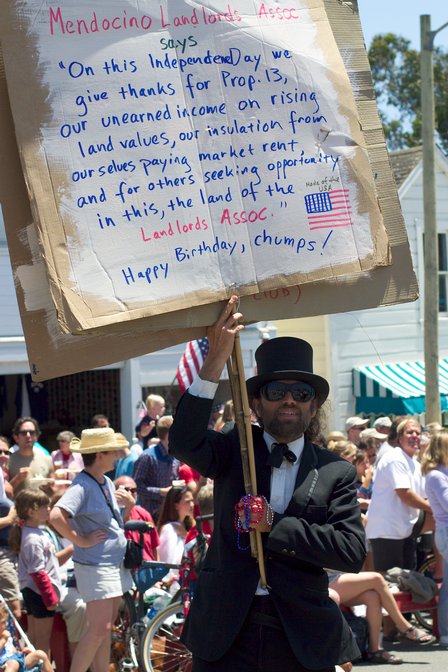 Mendocino Landlords Assoc
says
"On this IndependenDay we
give thanks for Prop. 13,
our unearned income on rising
land values, our insulation from
ourselves paying market rent,
and for others seeking opportunity
in this, the land of the
Landlords Assoc."
Made in the
USA
Happy Birthday, chumps!